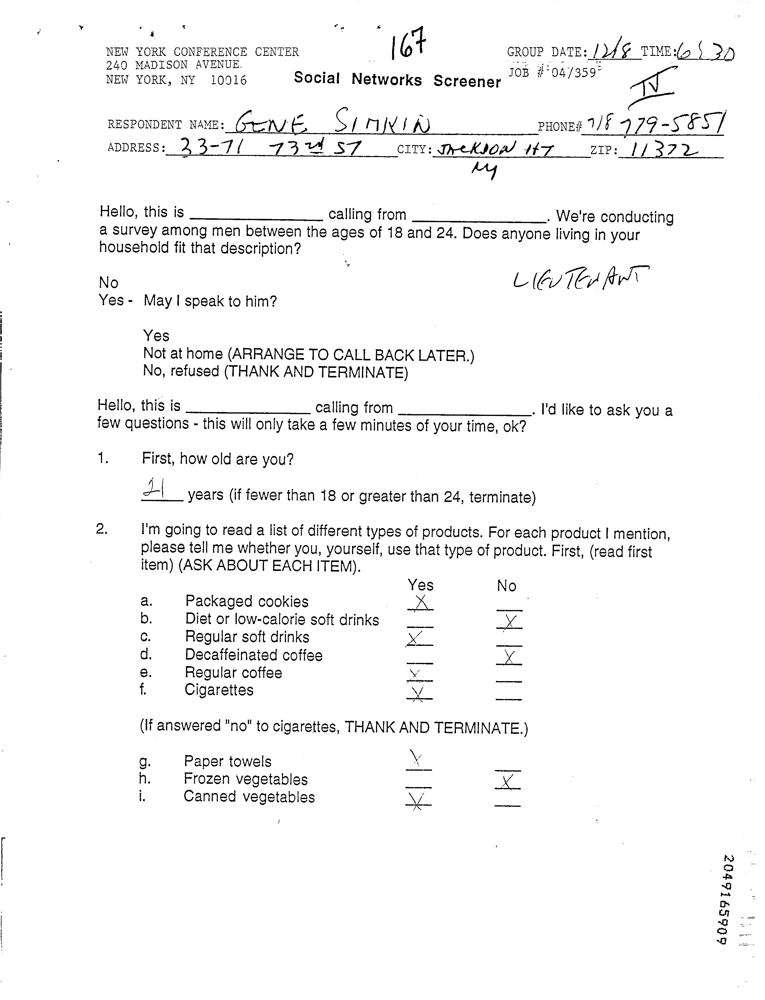 167
NEW YORK CONFERENCE CENTER
240 MADISON AVENUE
NEW YORK, NY 10016
Social Networks Screener
GROUP DATE: 12/8 TIME: 6:30
JOB # 04/359
IV
RESPONDENT NAME: GENE SIMKIN PHONE# 718 779-5851
ADDRESS: 33-71 73rd ST CITY: JACKSON HT ZIP: 11372
NY
Hello, this is ____ calling from ____. We're conducting
a survey among men between the ages of 18 and 24. Does anyone living in your
household fit that description?
LIEUTENANT
No
Yes - May I speak to him?
Yes
Not at home (ARRANGE TO CALL BACK LATER.)
No, refused (THANK AND TERMINATE)
Hello, this is ____ calling from ____. I'd like to ask you a
few questions - this will only take a few minutes of your time, ok?
1. First, how old are you?
21 years (if fewer than 18 or greater than 24, terminate)
2. I'm going to read a list of different types of products. For each product I mention,
please tell me whether you, yourself, use that type of product. First, (read first
item) (ASK ABOUT EACH ITEM).
Yes No
a. Packaged cookies X __
b. Diet or low-calorie soft drinks __ X
c. Regular soft drinks X __
d. Decaffeinated coffee __ X
e. Regular coffee X __
f. Cigarettes X __
(If answered "no" to cigarettes, THANK AND TERMINATE.)
g. Paper towels X __
h. Frozen vegetables __ X
i. Canned vegetables X __
2049165909